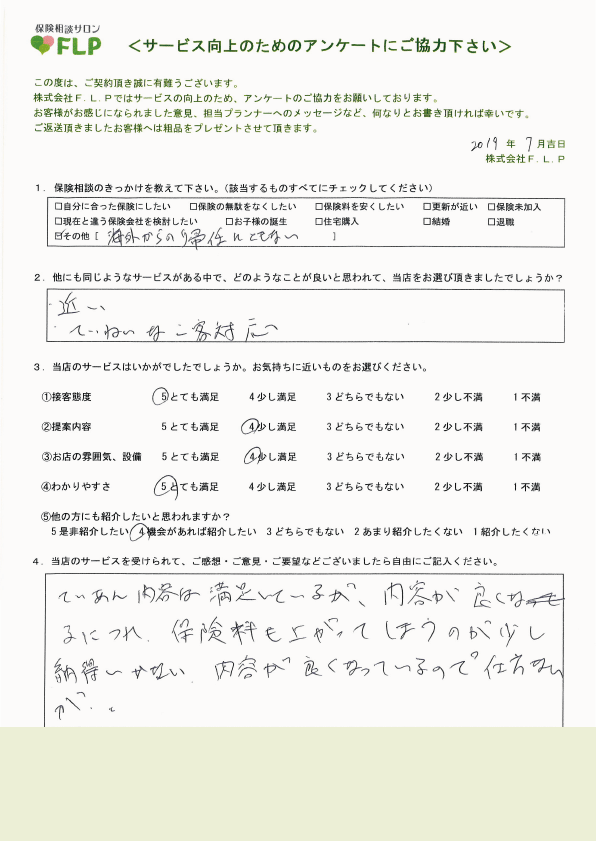 保険相談サロン
FLP
＜サービス向上のためのアンケートにご協力下さい＞
この度は、ご契約頂き誠に有難うございます。
株式会社F.L.Pではサービスの向上のため、アンケートのご協力をお願いしております。
お客様がお感じになられました意見、担当プランナーへのメッセージなど、何なりとお書き頂ければ幸いです。
ご返送頂きましたお客様へは粗品をプレゼントさせて頂きます。
2019 年 7月吉日
株式会社F.L.P
1. 保険相談のきっかけを教えて下さい。(該当するものすべてにチェックしてください)
□自分に合った保険にしたい □保険の無駄をなくしたい □保険料を安くしたい □更新が近い □保険未加入
□現在と違う保険会社を検討したい □お子様の誕生 □住宅購入 □結婚 □退職
☑その他 [ 海外からの帰任にともない ]
2. 他にも同じようなサービスがある中で、どのようなことが良いと思われて、当店をお選び頂きましたでしょうか?
・近い
・ていねいなご客対応
3. 当店のサービスはいかがでしたでしょうか。お気持ちに近いものをお選びください。
①接客態度 5とても満足 4少し満足 3どちらでもない 2少し不満 1不満
②提案内容 5とても満足 4少し満足 3どちらでもない 2少し不満 1不満
③お店の雰囲気、設備 5とても満足 4少し満足 3どちらでもない 2少し不満 1不満
④わかりやすさ 5とても満足 4少し満足 3どちらでもない 2少し不満 1不満
⑤他の方にも紹介したいと思われますか?
5是非紹介したい 4機会があれば紹介したい 3どちらでもない 2あまり紹介したくない 1紹介したくない
4. 当店のサービスを受けられて、ご感想・ご意見・ご要望などございましたら自由にご記入ください。
ていあん内容は満足しているが、内容が良くな
るにつれ、保険料も上がってしまうのが少し
納得いかない。内容が良くなっているので仕方ない
が。。